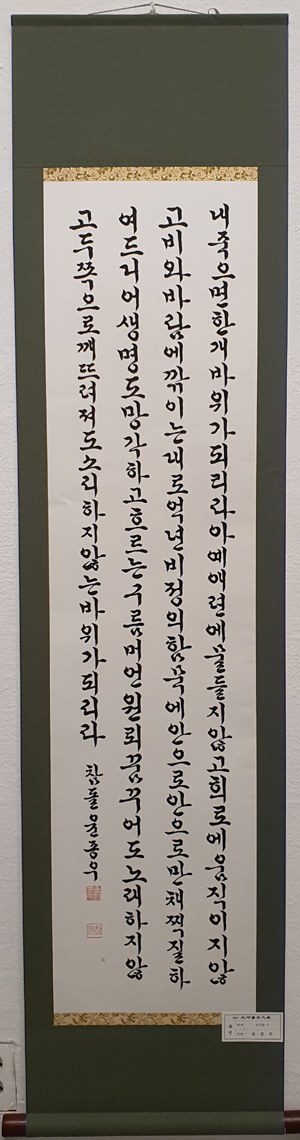 내죽으면한개바위가되리라아예애련에물들지않고희로에움직이지않
고비와바람에깎이는대로억년비정의함묵에안으로안으로만채찍질하
여드디어생명도망각하고흐르는구름머언원뢰꿈꾸어도노래하지않
고두쪽으로깨뜨려져도소리하지않는바위가되리라
참돌윤종우